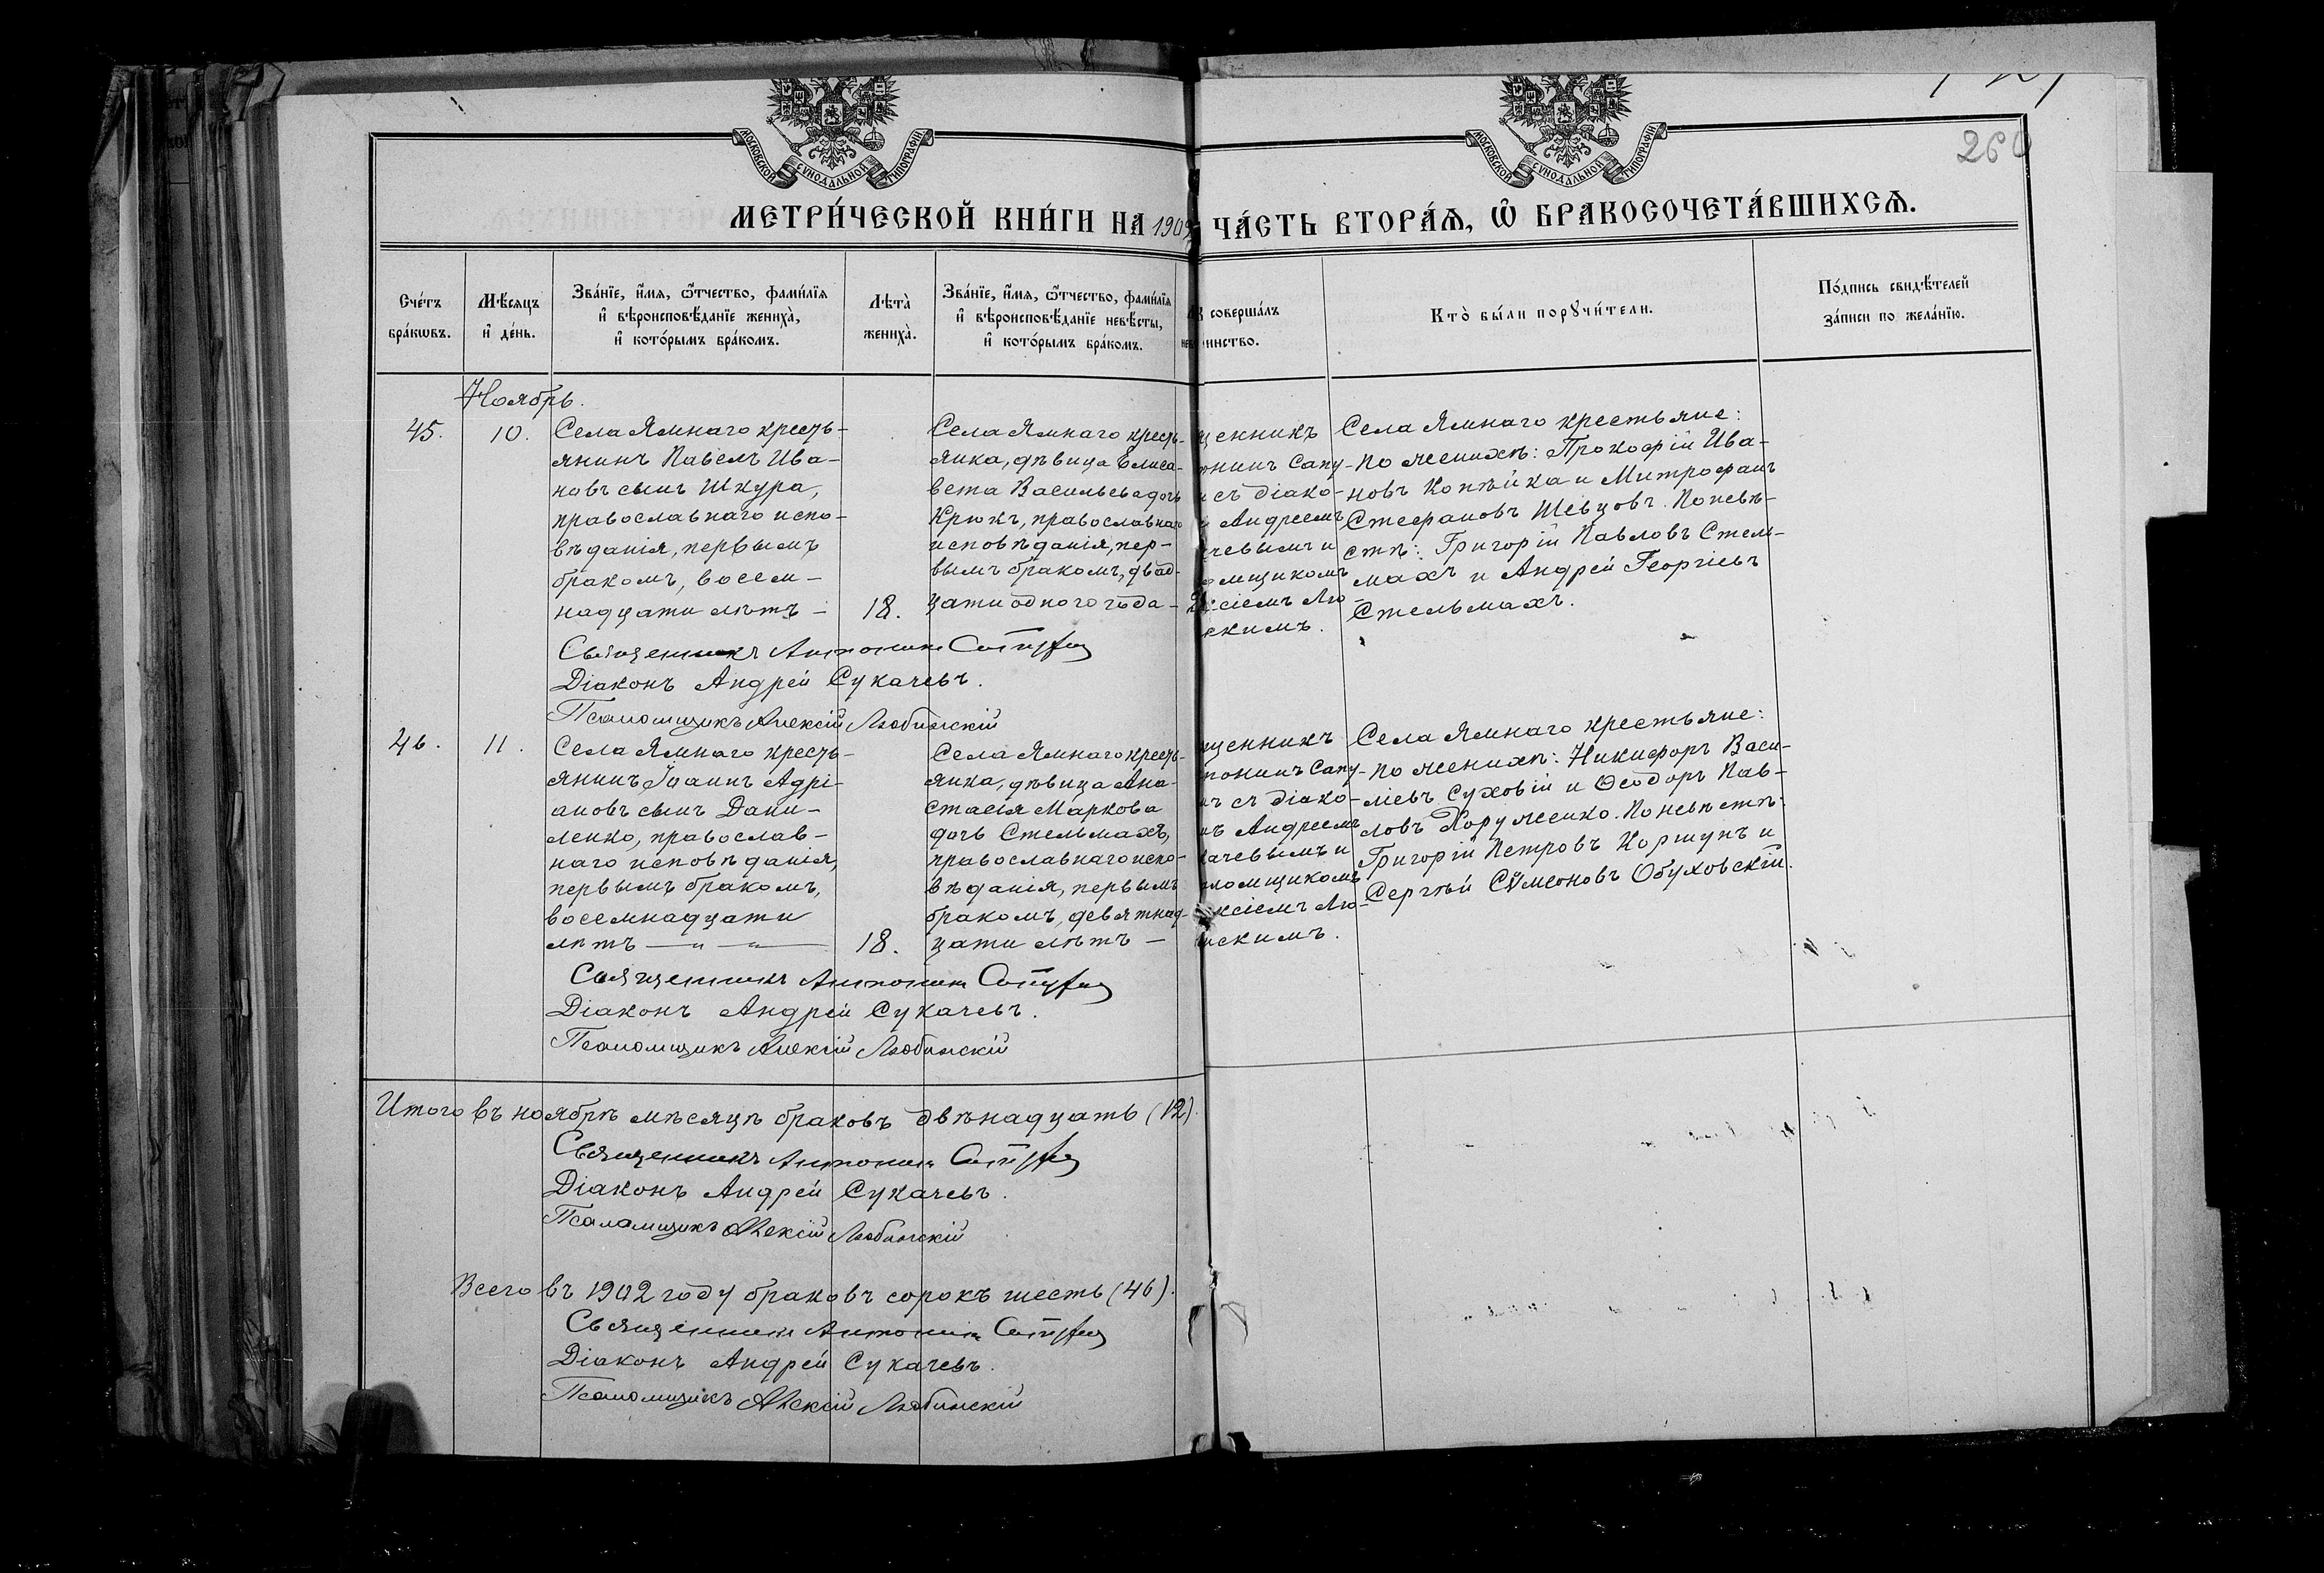 МОСКОВСКОЙ СѴНОДАЛЬНОЙ ТИПОГРАФІИ
МОСКОВСКОЙ СѴНОДАЛЬНОЙ ТИПОГРАФІИ
260
МЕТРИ́ЧЕСКОЙ КНИ́ГИ НА 1902 ЧА́СТЬ ВТОРА́Ѧ, Ѡ҆ БРАКОСОЧЕТА́ВШИХСѦ.
Сче́тъ
бра́кѡвъ.
Мѣ́сяцъ
и҆ де́нь.
Зва́нїе, и҆́мѧ, ѻ҆́тчество, фами́лїѧ
и҆ вѣроисповѣ́данїе жениха̀,
и҆ кото́рымъ бра́комъ.
Лѣта̀
жениха̀.
Зва́нїе, и҆́мѧ, ѻ҆́тчество, фами́лїѧ
и҆ вѣроисповѣ́данїе невѣ́сты,
и҆ кото́рымъ бра́комъ.
соверша́лъ
инство.
Кто̀ бы́ли порꙋчи́тели.
По́дпись свидѣ́телей
за́писи по жела́нїю.
Ноябрь.
45.
10.
Села Ямнаго кресть-
янинъ Павелъ Ива-
новъ сынъ Шкура,
православнаго испо-
вѣданія, первымъ
бракомъ, восем-
надцати лѣтъ -
18.
Села Ямнаго кресть-
янка, дѣвица Елиса-
вета Васильева дочь
Крюкъ, православнаго
исповѣданія, пер-
вымъ бракомъ, двад-
цати одного года -
щенникъ
нинъ Сапу-
съ діако-
Андреемъ
чевымъ и
омщикомъ
ксіемъ Лю-
скимъ.
Села Ямнаго крестьяне:
по женихѣ: Прокофій Ива-
новъ Копѣйка и Митрофанъ
Стефановъ Шевцовъ. По невѣ-
стѣ: Григорій Павловъ Стель-
махъ и Андрей Георгіевъ
Стельмахъ.
Священникъ Антонинъ
Діаконъ Андрей Сукачевъ.
Псаломщикъ Алексій Любинскій
46.
11.
Села Ямнаго кресть-
янинъ Іоаннъ Адрі-
ановъ сынъ Дани-
ленко, православ-
наго исповѣданія,
первымъ бракомъ,
восемнадцати
лѣтъ — " —
18.
Села Ямнаго кресть-
янка, дѣвица Ана-
стасія Маркова
дочь Стельмахъ,
православнаго испо-
вѣданія, первымъ
бракомъ, девятнад-
цати лѣтъ -
щенникъ
тонинъ Сапу-
ъ съ діако-
ъ Андреемъ
качевымъ и
ломщикомъ
ксіемъ Лю-
нскимъ.
Села Ямнаго крестьяне:
по женихѣ: Никифоръ Васи-
ліевъ Суховій и Ѳеодоръ Пав-
ловъ Хоруженко. По невѣстѣ:
Григорій Петровъ Коршунъ и
Сергѣй Сѵмеоновъ Обуховскій.
Священникъ Антонинъ
Діаконъ Андрей Сукачевъ.
Псаломщикъ Алексій Любинскій
Итого въ ноябрѣ мѣсяцѣ браковъ двѣнадцать (12).
Священникъ Антонинъ
Діаконъ Андрей Сукачевъ.
Псаломщикъ Алексій Любинскій
Всего въ 1902 году браковъ сорокъ шесть (46).
Священникъ Антонинъ
Діаконъ Андрей Сукачевъ.
Псаломщикъ Алексій Любинскій